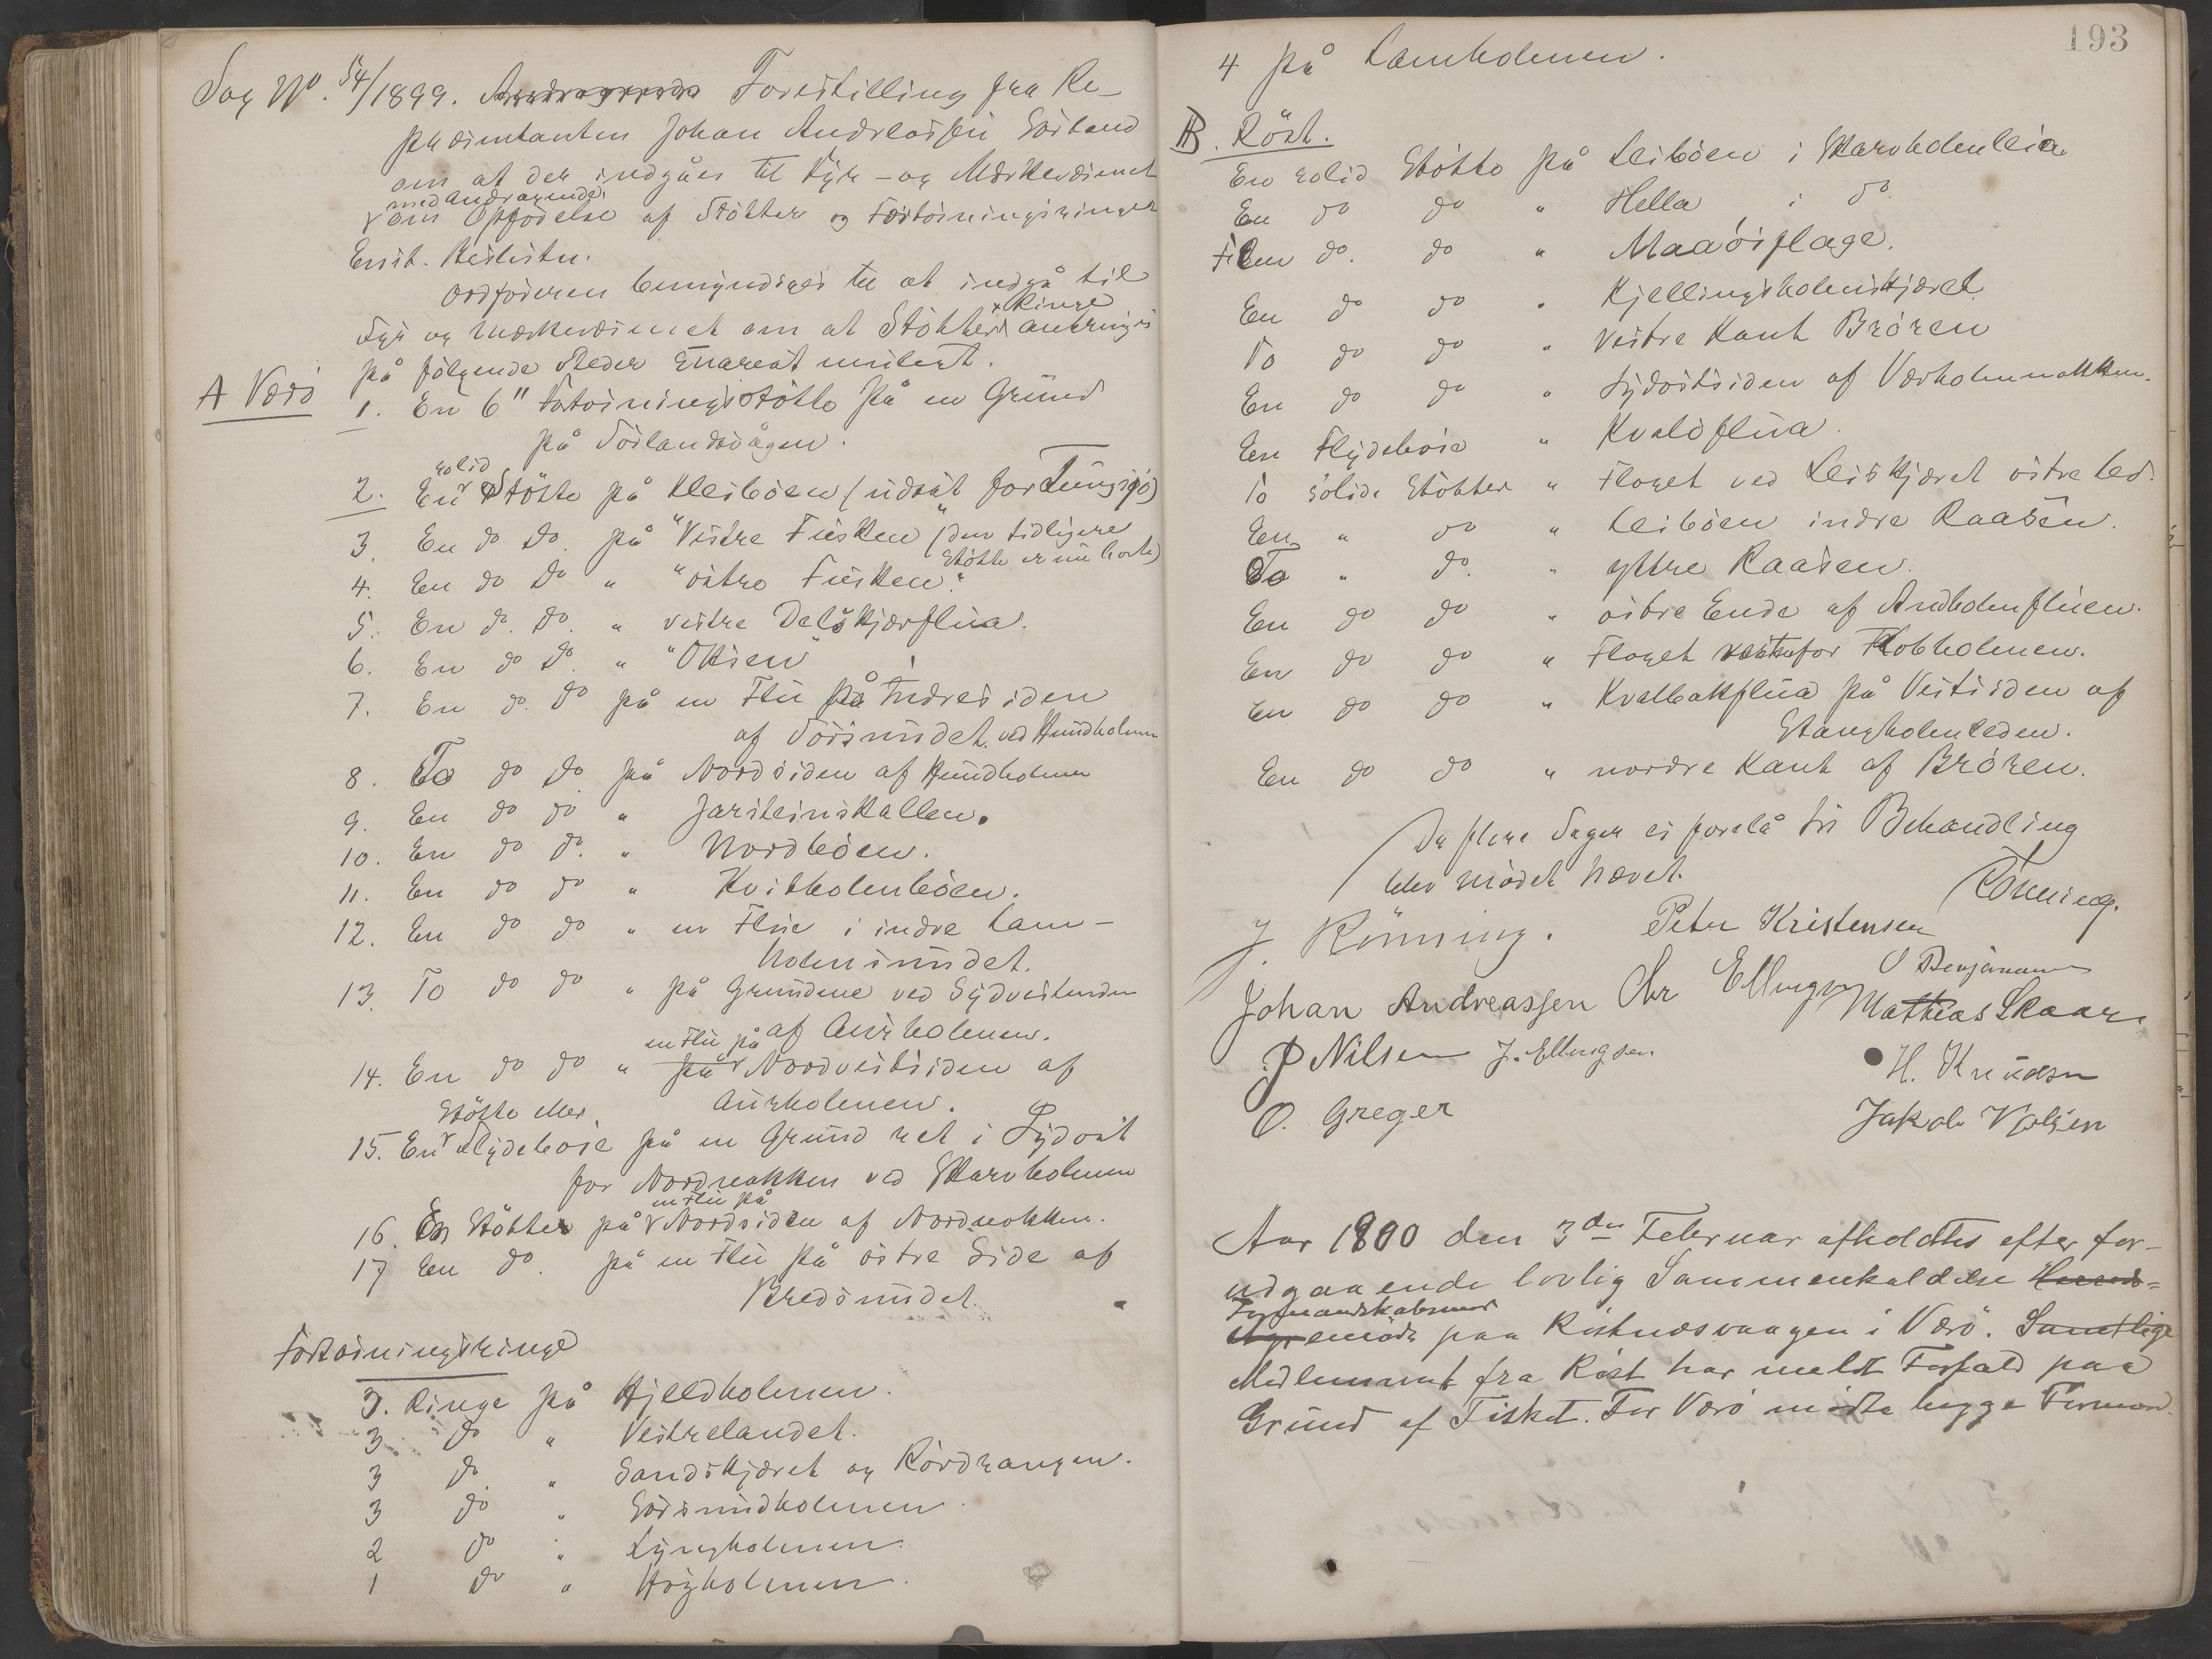 Sag No. 54/1899. Andragende Forestilling fra Re-
præsentanten Johan Andreassen Sörland
om at der indgåes til Fyr- og Mærkevæsenet
med andragende
om Opförelse af Stötter og Fortöiningsringer
Enst. Besluttn.
Ordföreren bemyndiges til at indgå til
Fyr og Mærkevæsenet om at Stötter & Ringe anbringes
på fölgende Steder snarest muligt.
A Værö
1. En 6" Fortöiningsstötte på en Grund
på Sörlandsvågen.
2. En solid Stötte på Kleiböen (udsat for Tungsjö)
3. En do do. på "Vestre Fusken" (den tidligere
Stötte er nu borte)
4. En do do " "östre Fusken".
5. En do. do. " vestre Delskjærflua.
6. En do do. " "Oksen"
7. En do. do på en Flu på Indresiden
af Sörsundet. ved Hundholmen
8. To do do. på Nordsiden af Hundholmen
9. En do do " Jarsteinskallen.
10. En do do. " Nordböen.
11. En do do " Kvitholmböen.
12. En do do " en Flue i indre Lam-
holmsundet.
13. To do do " på Grundene ved Sydvestenden
af Aurholmen.
14. En do do " på en Flu på Nordvestsiden af
Aurholmen.
15. En Stötte eller Flydeböie på en Grund ret i Sydost
for Nordnakken ved Skarvholmen
16. En Stötte på en Flu på Nordsiden af Nordnakken.
17 En do. på en Flu på östre Side af
Bredsundet.
Fortöiningsringe
3. Ringe på Kjeldholmen.
3 do " Vestrelandet.
3 do " Sandskjæret og Rördrangen.
3 do " Sörsundholmen.
2 do " Lyngholmen.
1 do " Høgholmen.
193
4 på Lamholmen.
B. Röst.
En solid Stötte på Leiböen i Skarvholmleia
En do do " Hella i do.
En do. do " Maaösflage.
En do do " Kjellingsholmskjæret.
To do do " Vestre Kant Brören
En do do " Sydostsiden af Værholmnakken.
En Flydeböie " Kvalöflua.
To solide Stötter " Floget ved Leiskjæret östre Led.
En " do " Leiböen indre Raasen.
To " do. " yttre Raasen.
En do do " östre Ende af Andholmfluen.
En do do " Floget vestenfor Flobholmen.
En do do " Kvalbakflua på Vestsiden af
Stangholmleden.
En do do " nordre Kant af Brören.
Da flere Sager ei forelå til Behandling
blev mödet hævet.
Rönning.
J. Rönning. Peter Kristensen
O Benjaminsen
Johan Andreassen Chr Ellingsen Mathias Skaar
P Nilsen J. Ellingsen
H. Knudsen
O. Greger
Jakob
Aar 1900 den 3die Februar afholdtes efter for-
udgaaende lovlig Sammenkaldelse Herreds-
Formandskabsmöde
möde paa Röstnesvaagen i Værö. Samtlige
Medlemmer fra Röst har meldt Forfald paa
Grund af Fisket. For Værö mödte begge Formænd